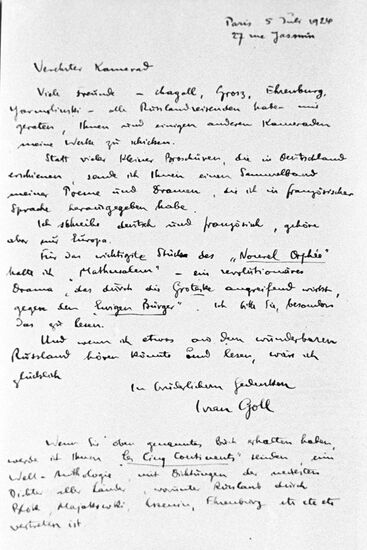 Paris 5 Juli 1924
27 rue Jasmin
Verehrter Kamerad
Viele Freunde – Chagall, Grosz, Ehrenburg,
Yarmolinski – alle Russlandreisenden haben mir
geraten, Ihnen und einigen anderen Kameraden
meine Werke zu schicken.
Statt vieler kleiner Broschüren, die in Deutschland
erschienen, sende ich Ihnen einen Sammelband
meiner Poeme und Dramen, die ich in französischer
Sprache herausgegeben habe.
Ich schreibe deutsch und französisch, gehöre
aber nur Europa.
Für das wichtigste Stück des „Nouvel Orphée"
halte ich „Mathusalem" – ein revolutionäres
Drama, das durch die Groteske angreifend wirkt,
gegen den „Ewigen Bürger". Ich bitte Sie, besonders
das zu lesen.
Und wenn ich etwas aus dem wunderbaren
Russland hören könnte und lesen, wär ich
glücklich
In brüderlichem Gedenken
Ivan Goll
Wenn Sie oben genanntes Buch erhalten haben,
werde ich Ihnen „Les Cinq Continents" senden eine
Welt-Anthologie, mit Dichtungen der neuesten
Dichter aller Länder, worunter Russland durch
Block, Majakowski, Essenin, Ehrenburg etc etc etc
vertreten ist